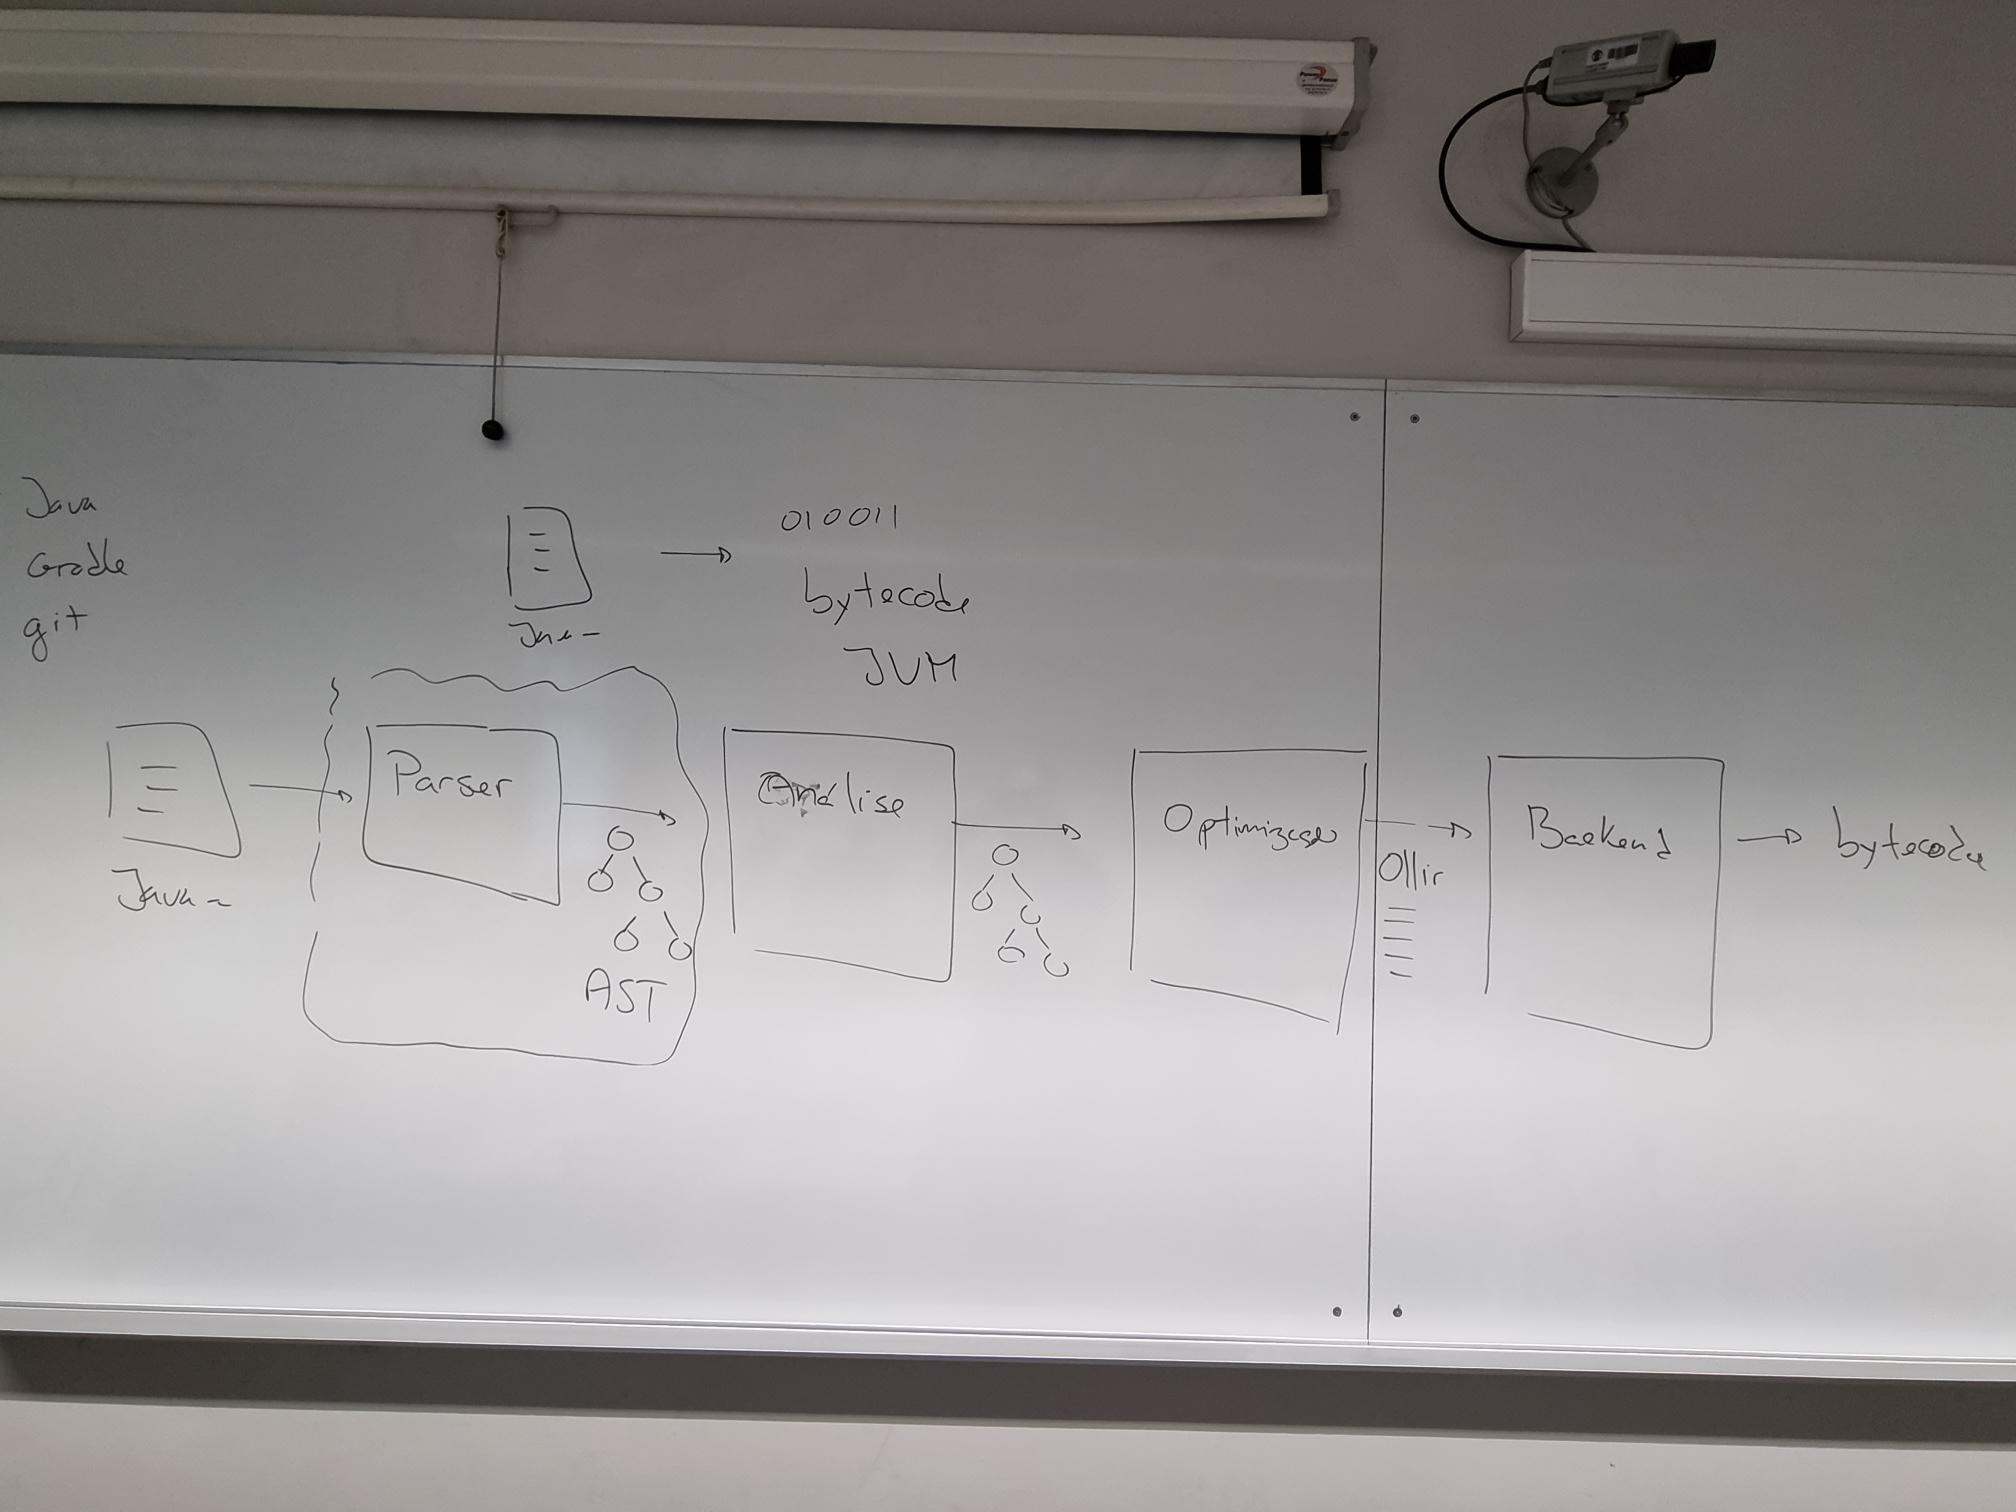 Java
Gradle
git
010011
bytecode
JVM
Java-
Parser
AST
Análise
Optimização
Ollir
Backend
bytecode
Java-